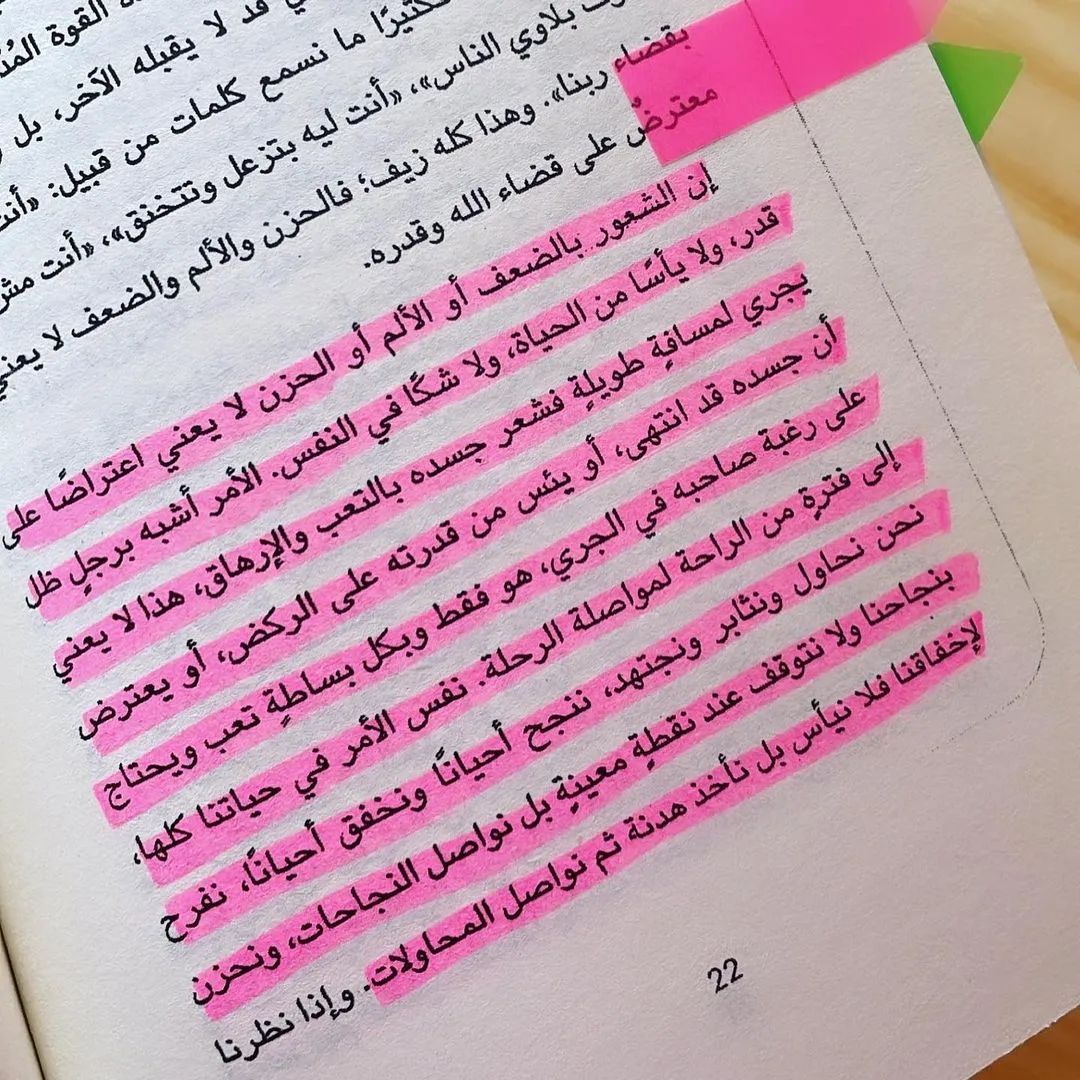 القوة
قد لا يقبله الآخر، بل
كثيرًا ما نسمع كلمات من قبيل: «أنت
بلاوي الناس»، «أنت ليه بتزعل وتتخنق»، «أنت مش
بقضاء ربنا». وهذا كله زيف؛ فالحزن والألم والضعف لا يعني
معترضٌ على قضاء الله وقدره.
إن الشعور بالضعف أو الألم أو الحزن لا يعني اعتراضًا على
قدر، ولا يأسًا من الحياة، ولا شكًا في النفس. الأمر أشبه برجلٍ ظل
يجري لمسافةٍ طويلةٍ فشعر جسده بالتعب والإرهاق، هذا لا يعني
أن جسده قد انتهى، أو يئس من قدرته على الركض، أو يعترض
على رغبة صاحبه في الجري، هو فقط وبكل بساطةٍ تعب ويحتاج
إلى فترةٍ من الراحة لمواصلة الرحلة. نفس الأمر في حياتنا كلها،
نحن نحاول ونثابر ونجتهد، ننجح أحيانًا ونخفق أحيانًا، نفرح
بنجاحنا ولا نتوقف عند نقطةٍ معينةٍ بل نواصل النجاحات، ونحزن
لإخفاقنا فلا نيأس بل نأخذ هدنة ثم نواصل المحاولات. وإذا نظرنا
22